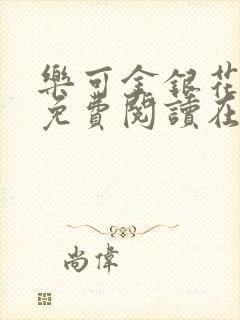 樂可金銀花
免費閱讀在
尚偉